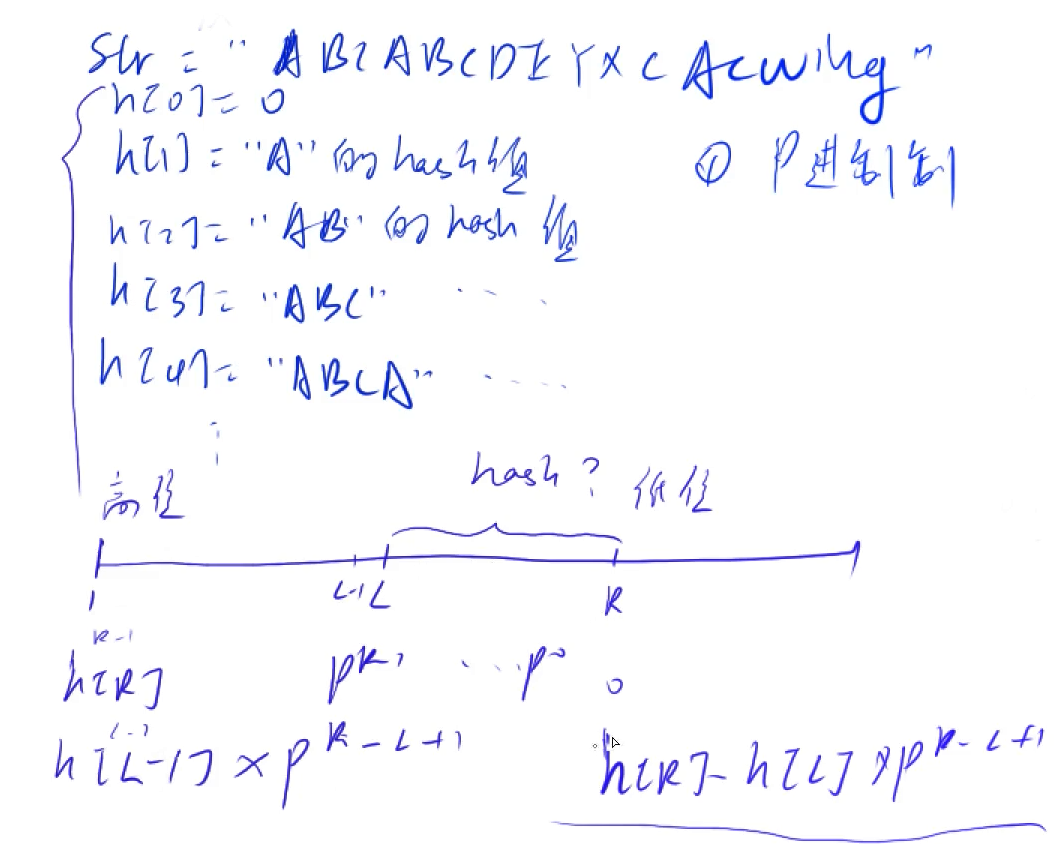 Str = "ABCABCDEYXCAcwing"
h[0] = 0
h[1] = "A" 的 hash 值
① P进制
h[2] = "AB" 的 hash 值
h[3] = "ABC" ...
h[4] = "ABCA" ....
⋮
hash ?
高位 低位
1 L-1 L R
R-1 0
h[R] p^R-1 ... p^0
L-2
h[L-1] × p^R-L+1 h[R] - h[L] × p^R-L+1